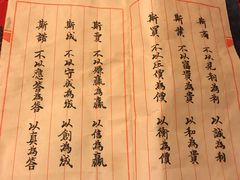 斯商 不以見利為利 以誠為利
斯業 不以富貴為貴 以和為貴
斯買 不以压價為價 以衡為價
斯賣 不以賺贏為贏 以信為贏
斯成 不以守成為成 以創為成
斯諾 不以應答為答 以真為答